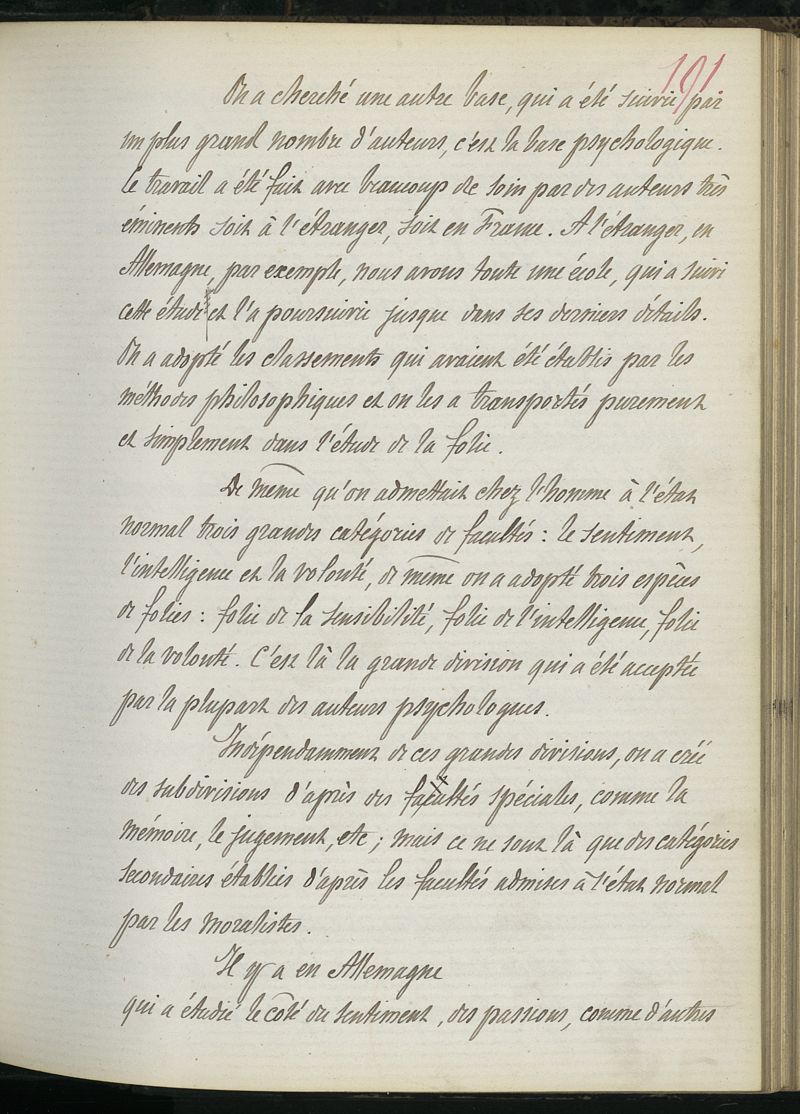 191
On a cherché une autre base, qui a été suivie par
un plus grand nombre d'auteurs, c'est la base psychologique.
Le travail a été fait avec beaucoup de soin par des auteurs très
éminents soit à l'étranger, soit en France. A l'étranger, en
Allemagne, par exemple, nous avons toute une école, qui a suivi
cette étude et l'a poursuivie jusque dans ses derniers détails.
On a adopté les classements qui avaient été établis par les
méthodes philosophiques et on les a transportés purement
et simplement dans l'étude de la folie.
De même qu'on admettait chez l'homme à l'état
normal trois grandes catégories de facultés : le sentiment,
l'intelligence et la volonté, de même on a adopté trois espèces
de folies : folie de la sensibilité, folie de l'intelligence, folie
de la volonté. C'est là la grande division qui a été acceptée
par la plupart des auteurs psychologues.
Indépendamment de ces grandes divisions, on a créé
des subdivisions d'après des facultés spéciales, comme la
mémoire, le jugement, etc ; mais ce ne sont là que des catégories
secondaires établies d'après les facultés admises à l'état normal
par les moralistes.
Il y a en Allemagne
qui a étudié le côté du sentiment, des passions, comme d'autres